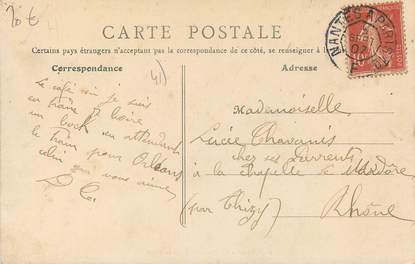 20 €
CARTE POSTALE
Certains pays étrangers n'acceptant pas la correspondance de ce côté, se renseigner à
Correspondance
Adresse
41)
NANTES A PARIS
Le café où je suis
en train de boire
un bock en attendant
le train pour Orléans
celui qui vous aime
Mademoiselle
Lucie Chavanis
chez ses parents
à la chapelle de Mardore
(par Thizy)
Rhône